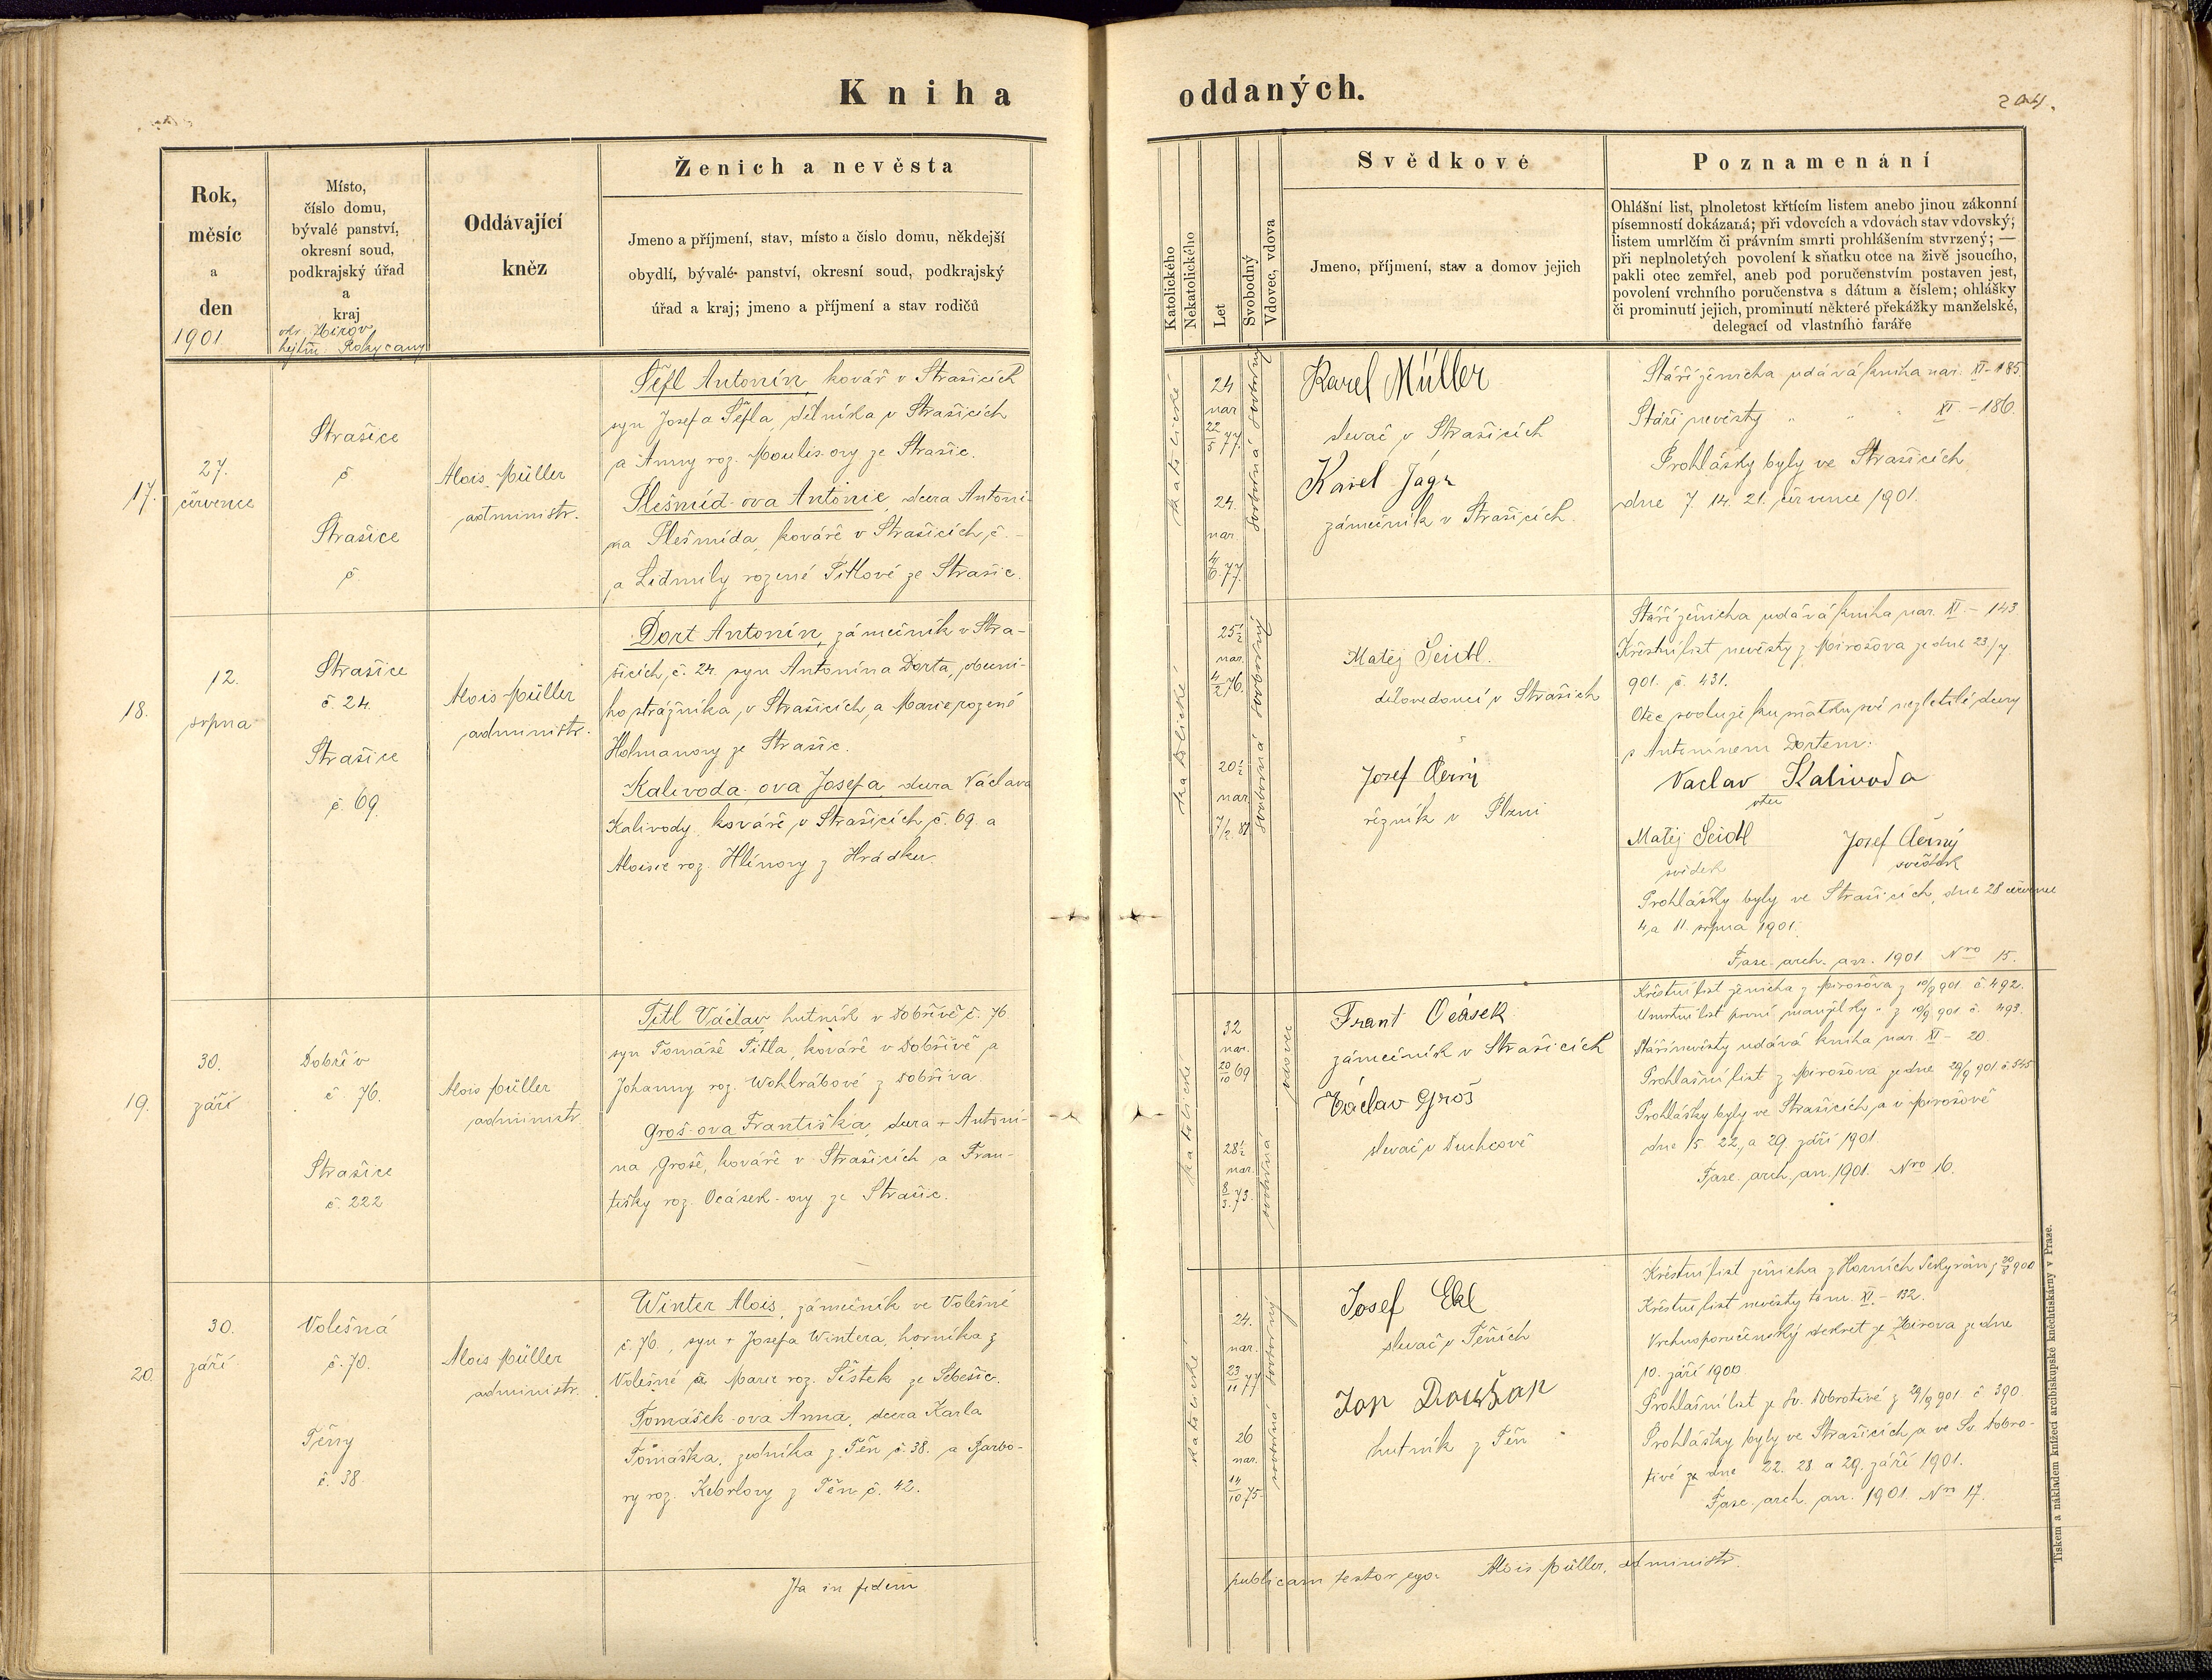 Kniha oddaných.
204.
Rok, měsíc a den
1901
Místo, číslo domu, bývalé panství, okresní soud, podkrajský úřad a kraj
okr. Zbirov
hejtm. Rokycany
Oddávající kněz
Ženich a nevěsta
Jmeno a příjmení, stav, místo a číslo domu, někdejší
obydlí, bývalé panství, okresní soud, podkrajský
úřad a kraj; jmeno a příjmení a stav rodičů
Katolického
Nekatolického
Let
Svobodný
Vdovec, vdova
Svědkové
Jmeno, příjmení, stav a domov jejich
Poznamenání
Ohlášní list, plnoletost křticím listem anebo jinou zákonní
písemností dokázaná; při vdovcích a vdovách stav vdovský;
listem umrlčím či právním smrti prohlášením stvrzený; —
při neplnoletých povolení k sňatku otce na živě jsoucího,
pakli otec zemřel, aneb pod poručenstvím postaven jest,
povolení vrchního poručenstva s dátum a číslem; ohlášky
či prominutí jejich, prominutí některé překážky manželské,
delegací od vlastního faráře
17.
27.
července
Strašice
č
Strašice
č
Alois Müller
administr.
Šefl Antonín, kovář v Strašicích
syn Josefa Šefla, dělníka v Strašicích
a Anny roz. Moulis-ovy ze Strašic.
Plešmíd-ova Antonie, dcera Antoní-
na Plešmída, kováře v Strašicích, č. -
a Lidmily rozené Titlové ze Strašic.
katolické
24
nar
22
5 77.
24.
nar.
4
6. 77.
svobodná svobodný
Karel Müller
slevač v Strašicích
Karel Jágr
zámečník v Strašicích.
Stáří ženicha udává kniha nar. XI - 185.
Stáří nevěsty " " " XI. - 186.
Prohlášky byly ve Strašicích
dne 7. 14. 21. července 1901.
18.
12.
srpna
Strašice
č. 24.
Strašice
č. 69.
Alois Müller
administr.
Dort Antonín, zámečník v Stra-
šicích, č. 24. syn Antonína Dorta, obecní-
ho strážníka, v Strašicích, a Marie rozené
Holmanovy ze Strašic.
Kalivoda-ova Josefa, dcera Václava
Kalivody, kováře v Strašicích č. 69. a
Aloisie roz. Hlínovy z Hrádku.
katolické
25½
nar.
4
2 76.
20½
nar.
svobodná svobodný
Matěj Seidl.
dělovedoucí v Strašicích
Josef Černý
řezník v Plzni
Stáří ženicha udává kniha nar. XI. - 143
Křestní list nevěsty z Mirošova ze dne 23./7.
901. č. 431.
Otec svoluje ku sňatku své nezletilé dcery
s Antonínem Dortem:
Vaclav Kalivoda
otec
Matěj Seidl Josef Černý
svědek svědek
Prohlášky byly ve Strašicích, dne 28 července
4. a 11. srpna 1901.
Fasc. arch. an. 1901 Nro 15.
19.
30.
září
Dobřív
č. 76.
Strašice
č. 222
Alois Müller
administr.
Titl Václav, hutník v Dobřívě č. 76
syn Tomáše Titla, kováře v Dobřívě a
Johanny roz. Wohlrábové z Dobříva.
Groš-ova Františka, dcera + Antoní-
na Groše, kováře v Strašicích a Fran-
tišky roz. Ocásek-ovy ze Strašic.
katolické
32
nar.
20
10 69
28½
nar.
8
3. 73.
svobodná vdovec
Frant Ocásek
zámečník v Strašicích
Václav Groš
slevač v Duchcově
Křestní list ženicha z Mirošova z 10/9 901 č. 492.
Umrtní list první manželky " z 10/9 901 č. 493.
Stáří nevěsty udává kniha nar. XI - 20.
Prohlašní list z Mirošova ze dne 29/9 901 č. 545
Prohlášky byly ve Strašicích a v Mirošově
dne 15. 22. a 29. září 1901.
Fasc. arch. an. 1901. Nro 16.
20.
30.
září
Volešná
č. 70.
Těny
č. 38
Alois Müller
administr.
Winter Alois, zámečník ve Volešné
č. 70., syn + Josefa Wintera, horníka z
Volešné a Marie roz. Šístek ze Sebešic.
Tomášek-ova Anna, dcera Karla
Tomáška, zedníka z Těň č. 38. a Barbo-
ry roz. Kebrlovy z Těň č. 42.
katolické
24.
nar.
23
11 77
26
nar.
14
10 75.
svobodná svobodný
Josef Ekl
slevač v Těních
Jan Doušan
hutník z Těň
Křestní list ženicha z Horních Sekyřan z 20 900
Křestní list nevěsty tom. XI. - 132.
Vrchnoporučenský dekret ze Zbirova ze dne
10. září 1900
Prohlašní list ze Sv. Dobrotivé z 29/9 901. č 390.
Prohlášky byly ve Strašicích a ve Sv. Dobro-
tivé ze dne 22. 28. a 29. září 1901.
Fasc. arch. an. 1901 Nro 17.
Ita in fidem publicam testor ego: Alois Müller, administr.
Tiskem a nákladem knížecí arcibiskupské knihtiskárny v Praze.